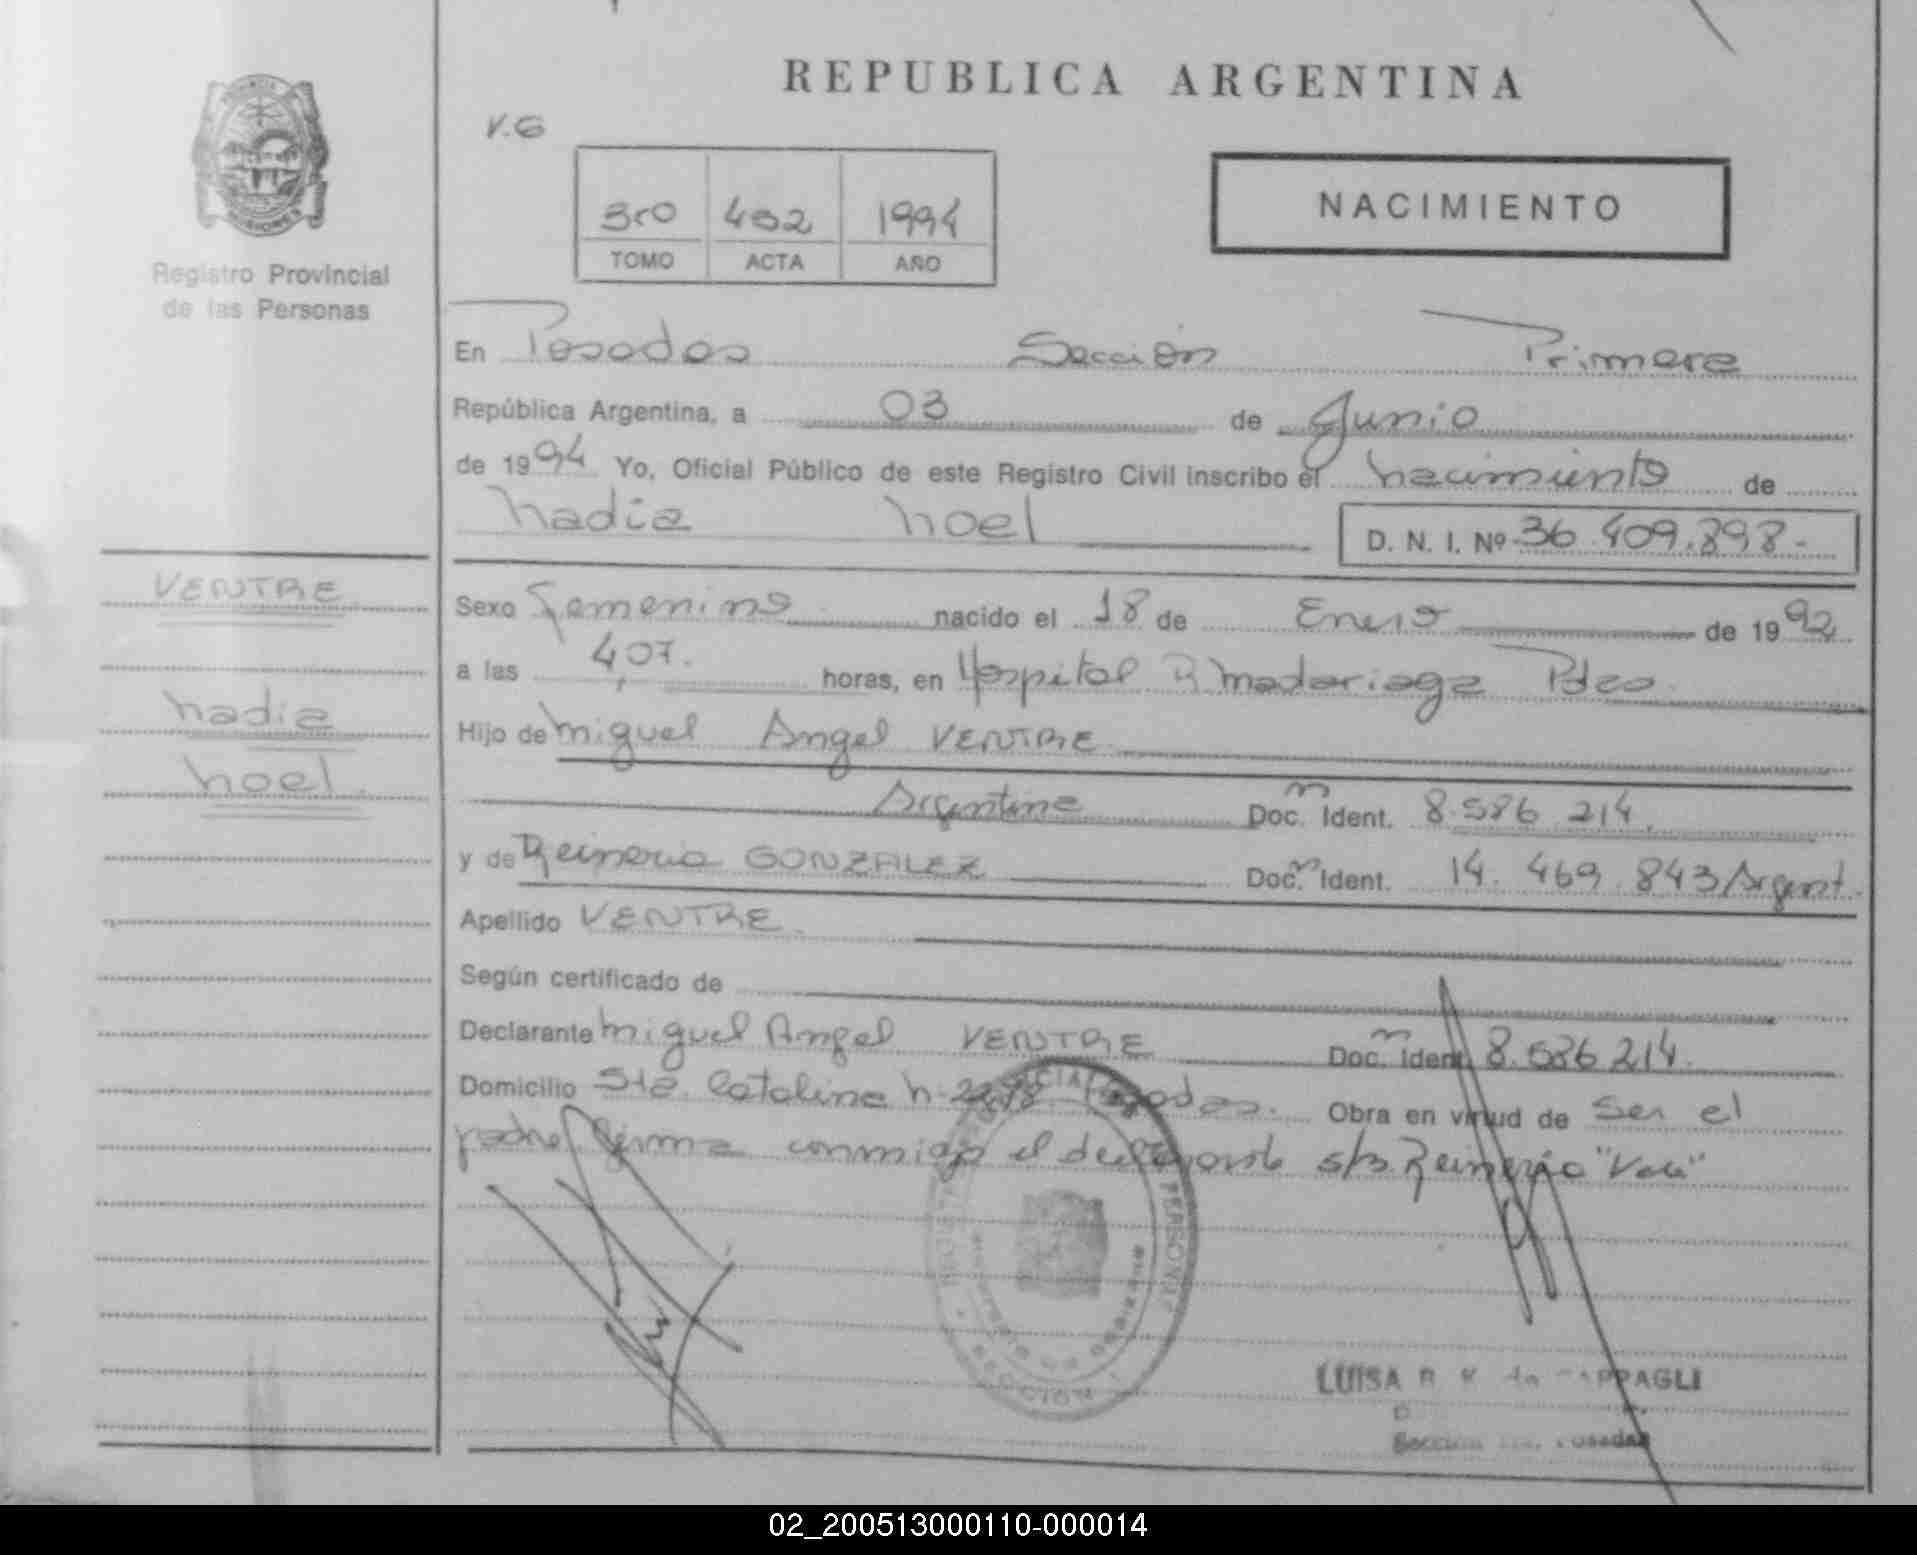 REPUBLICA ARGENTINA
V.G
3ro 432 1994
TOMO ACTA AÑO
NACIMIENTO
MISIONES
Registro Provincial
de las Personas
En Posadas Sección Primera
República Argentina, a 03 de Junio
de 1994 Yo, Oficial Público de este Registro Civil inscribo el nacimiento de
Nadia Noel D. N. I. Nº 36.409.898.-
VENTRE
Nadia
Noel.
Sexo Femenino nacido el 18 de Enero de 1992
a las 4,07. horas, en Hospital R Madariaga Pdas.
Hijo de Miguel Angel VENTRE
Argentina Doc. Ident. 8.586.214.
y de Reineria GONZALEZ Doc. Ident. 14.469.843 Argent.
Apellido VENTRE.
Según certificado de
Declarante Miguel Angel VENTRE Doc. Ident. 8.586.214.
Domicilio Sta. Catalina N. Posadas. Obra en virtud de Ser el
padre firma conmigo el declarante s/b Reineria "Vale"
LUISA
Sección Posadas
02_200513000110-000014